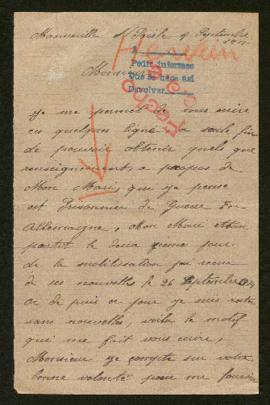 Manneville s/ Risle 9 Septembre
Monsieur
je me permet de vous écrire
ces quelques ligne a seule fin
de pouvoir obtenir quels que
renseignements a propos de
Mon Marie qui je pense
est Prisonnier de Guerre en
Allemagne, Mon Mari étant
partit le deuxième jour
de la mobilisation j'ai recue
de ses nouvelles le 26 Septembre
de puis ce jour je suis resté
sans nouvelles, voila le motif
qui me fait vous écrire,
Monsieur je compte sur votre
bonne volonté pour me fournir